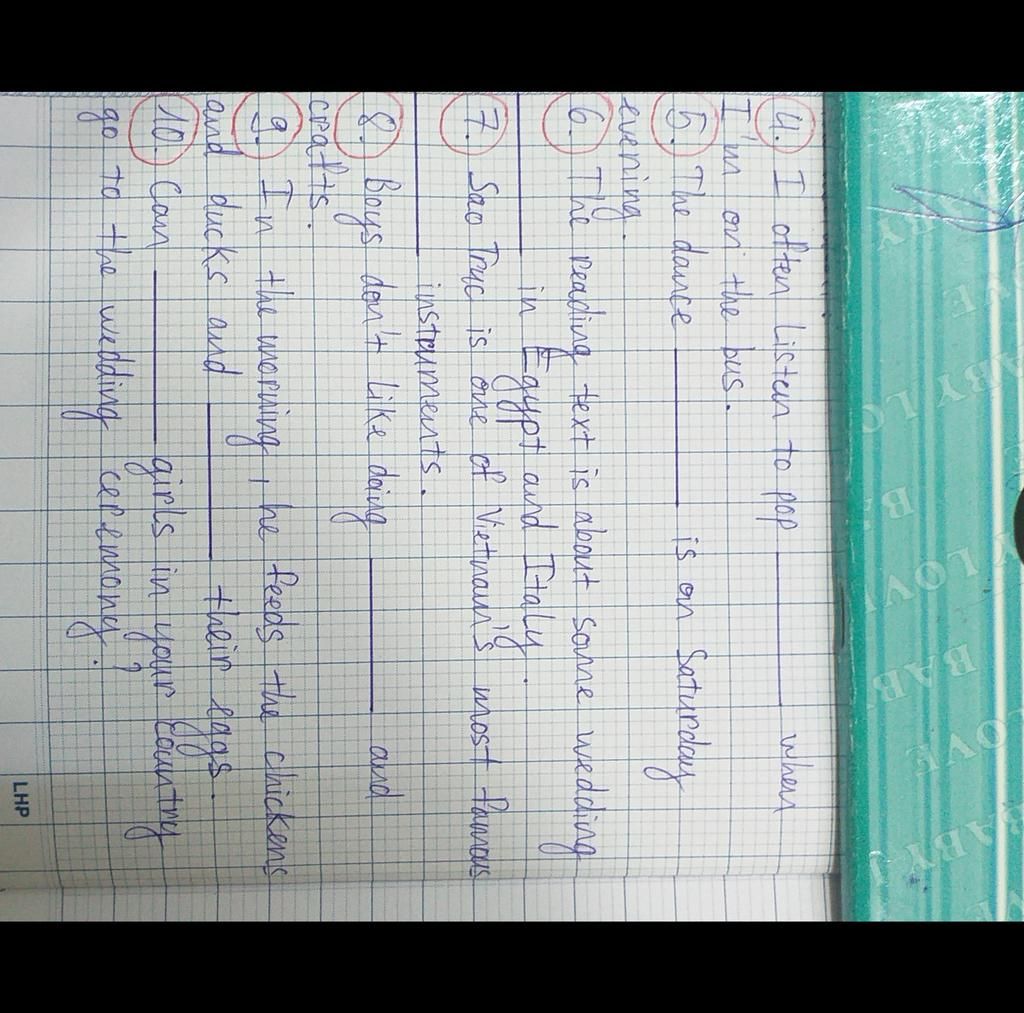 4. I often listen to pop ______ when
I'm on the bus.
5. The dance ______ is on Saturday
evening.
6. The reading text is about some wedding
______ in Egypt and Italy.
7. Sao Truc is one of Vietnam's most famous
______ instruments.
8. Boys don't like doing ______ and
crafts.
9. In the morning, he feeds the chickens
and ducks and ______ their eggs.
10. Can ______ girls in your country
go to the wedding ceremony?
LHP
BABY LOVE